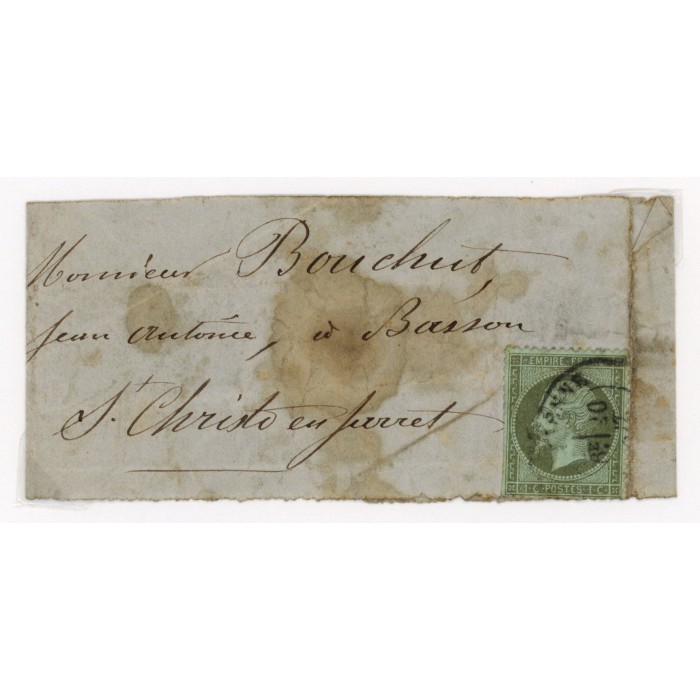 Monsieur Bouchut,
Jean Antoine, à Basson
St Christo en Jarret
EMPIRE FR
1 C. POSTES 1 C.